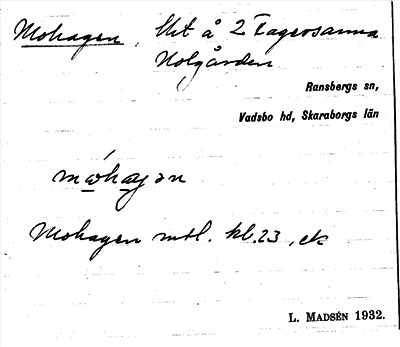 Mohagen, Urt å 2 Fagersanna
Nolgården
Ransbergs sn,
Vadsbo hd, Skaraborgs län
Mohagen mtl. kb. 23, ek
L. MADSÉN 1932.